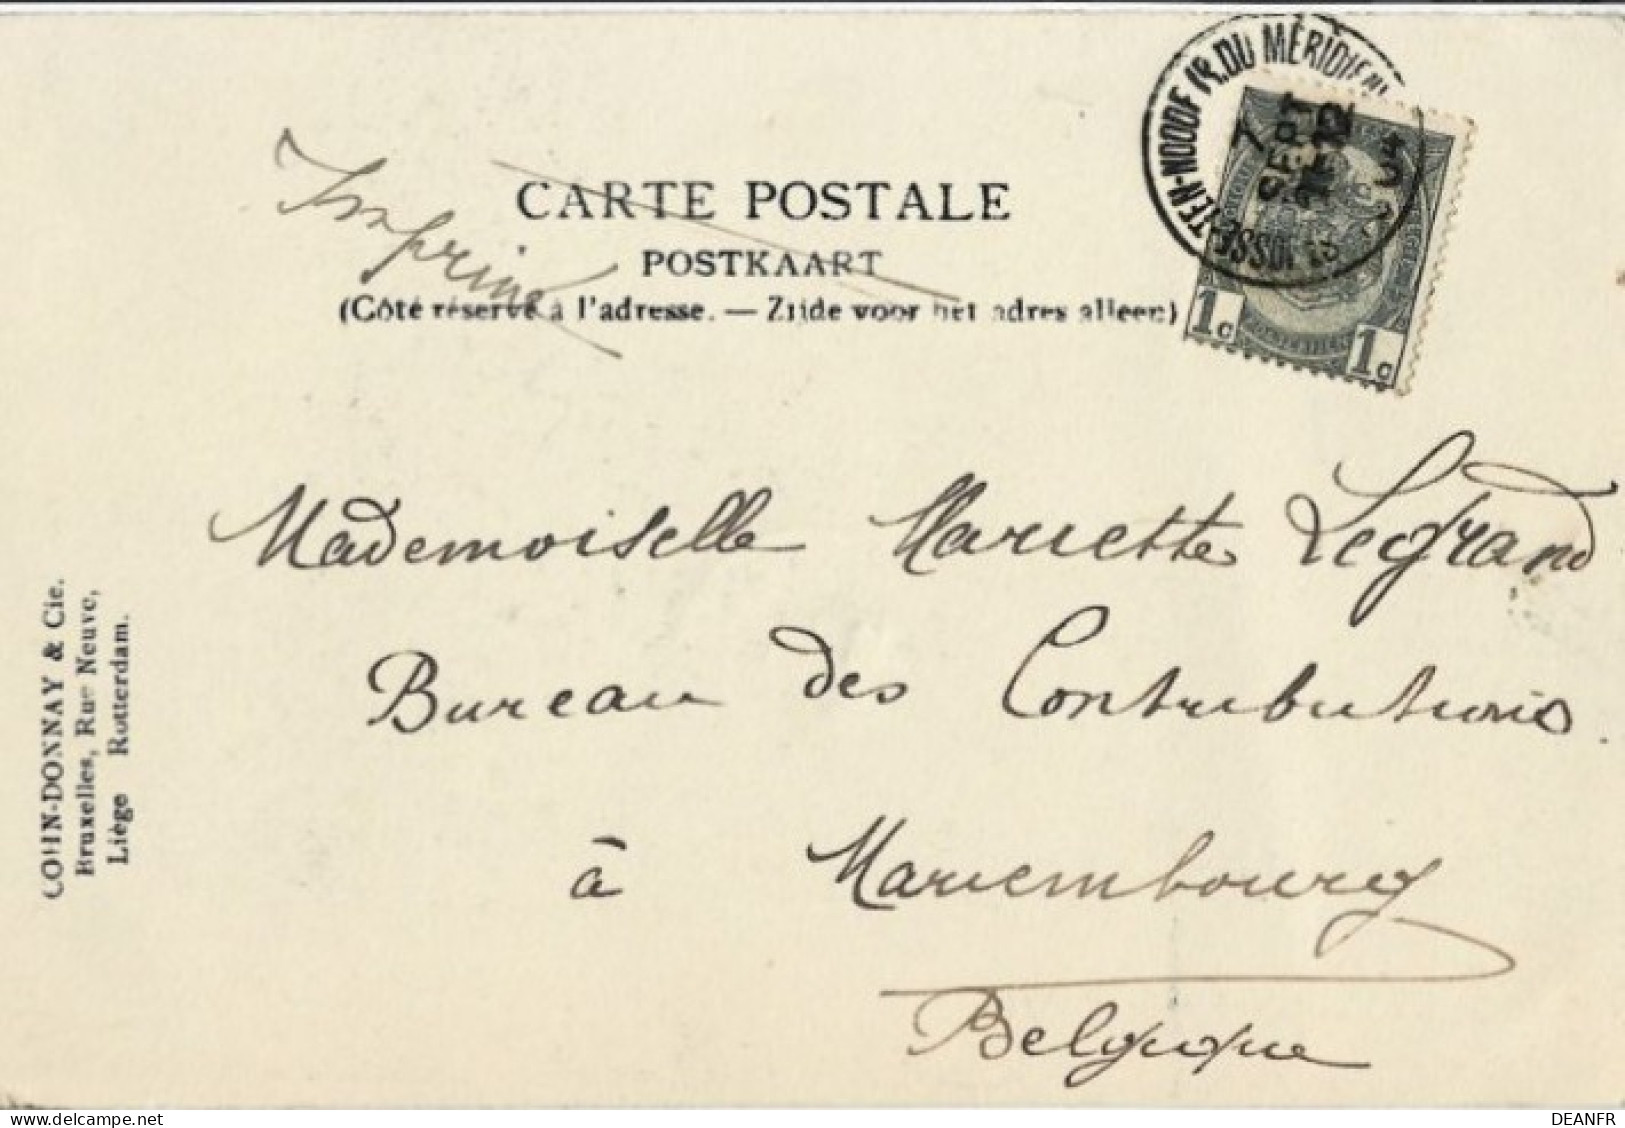 ST JOSSE-TEN-NOODE (R. DU MÉRIDIEN
7
SEPT
12
1c 1c
Imprimé
CARTE POSTALE
POSTKAART
(Côté réservé à l'adresse. — Zijde voor het adres alleen)
Mademoiselle Mariette Legrand
Bureau des Contributions.
à Mariembourg
Belgique
COHN-DONNAY & Cie.
Bruxelles, Rue Neuve,
Liège Rotterdam.
DEANFR